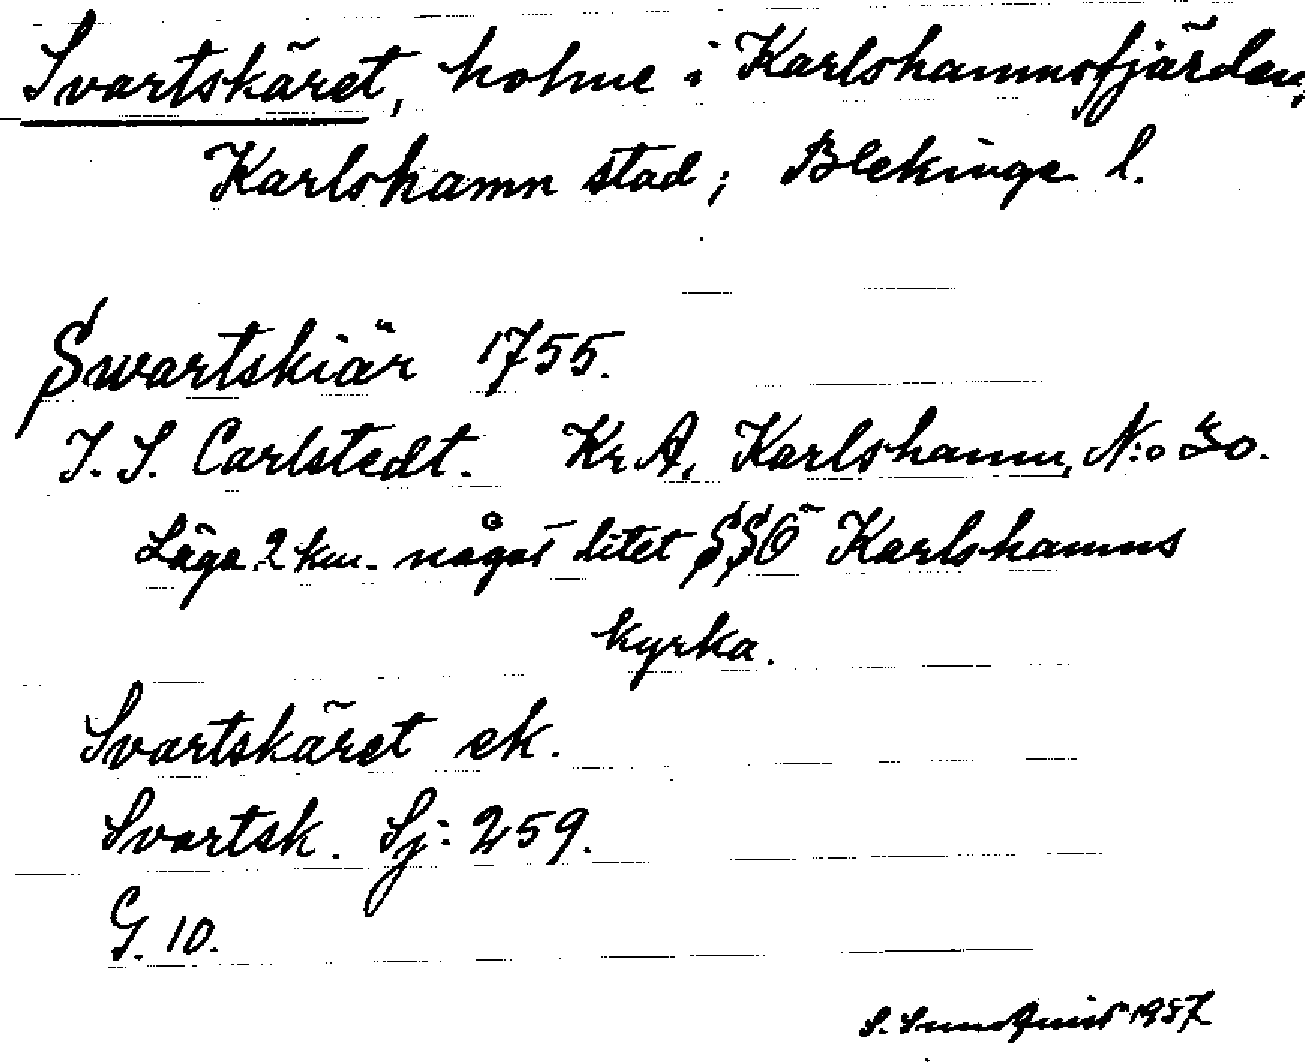 Svartskäret, holme i Karlshamnsfjärden,
Karlshamn stad; Blekinge l.
Swartskiär 1755.
J. S. Carlstedt. Kr. A. Karlshamn, N:o 30.
Läge 2 km. något litet SSÖ Karlshamns
kyrka.
Svartskäret ek.
Svartsk. Sj: 259.
G. 10.
S. Sundquist 1957